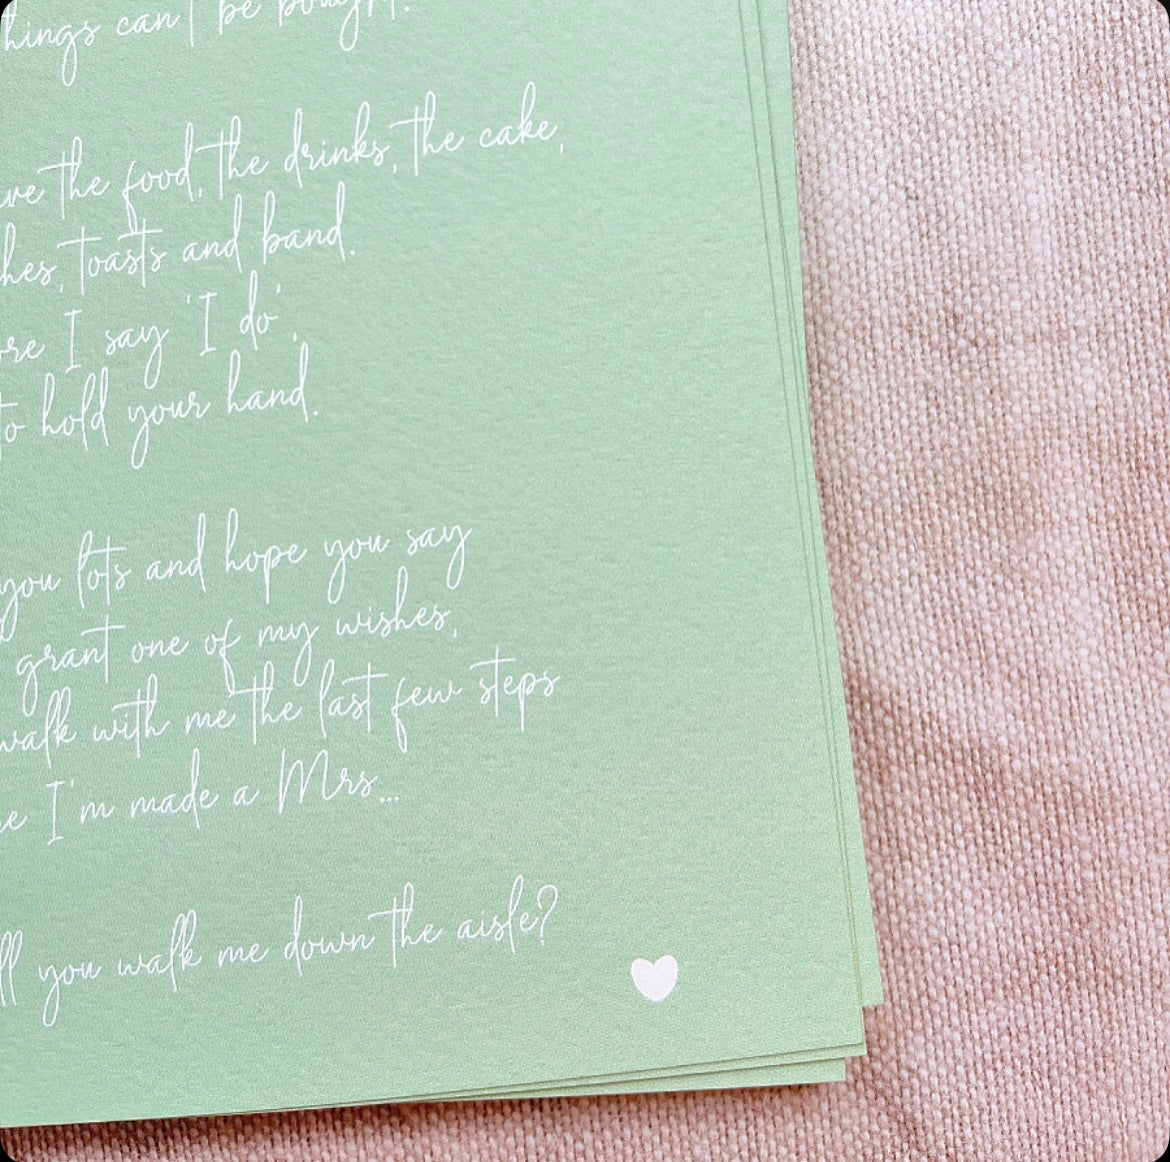 things can't be bought.
the food, the drinks, the cake,
toasts and band.
I say 'I do',
to hold your hand.
you lots and hope you say
grant one of my wishes,
walk with me the last few steps
I'm made a Mrs...
you walk me down the aisle?